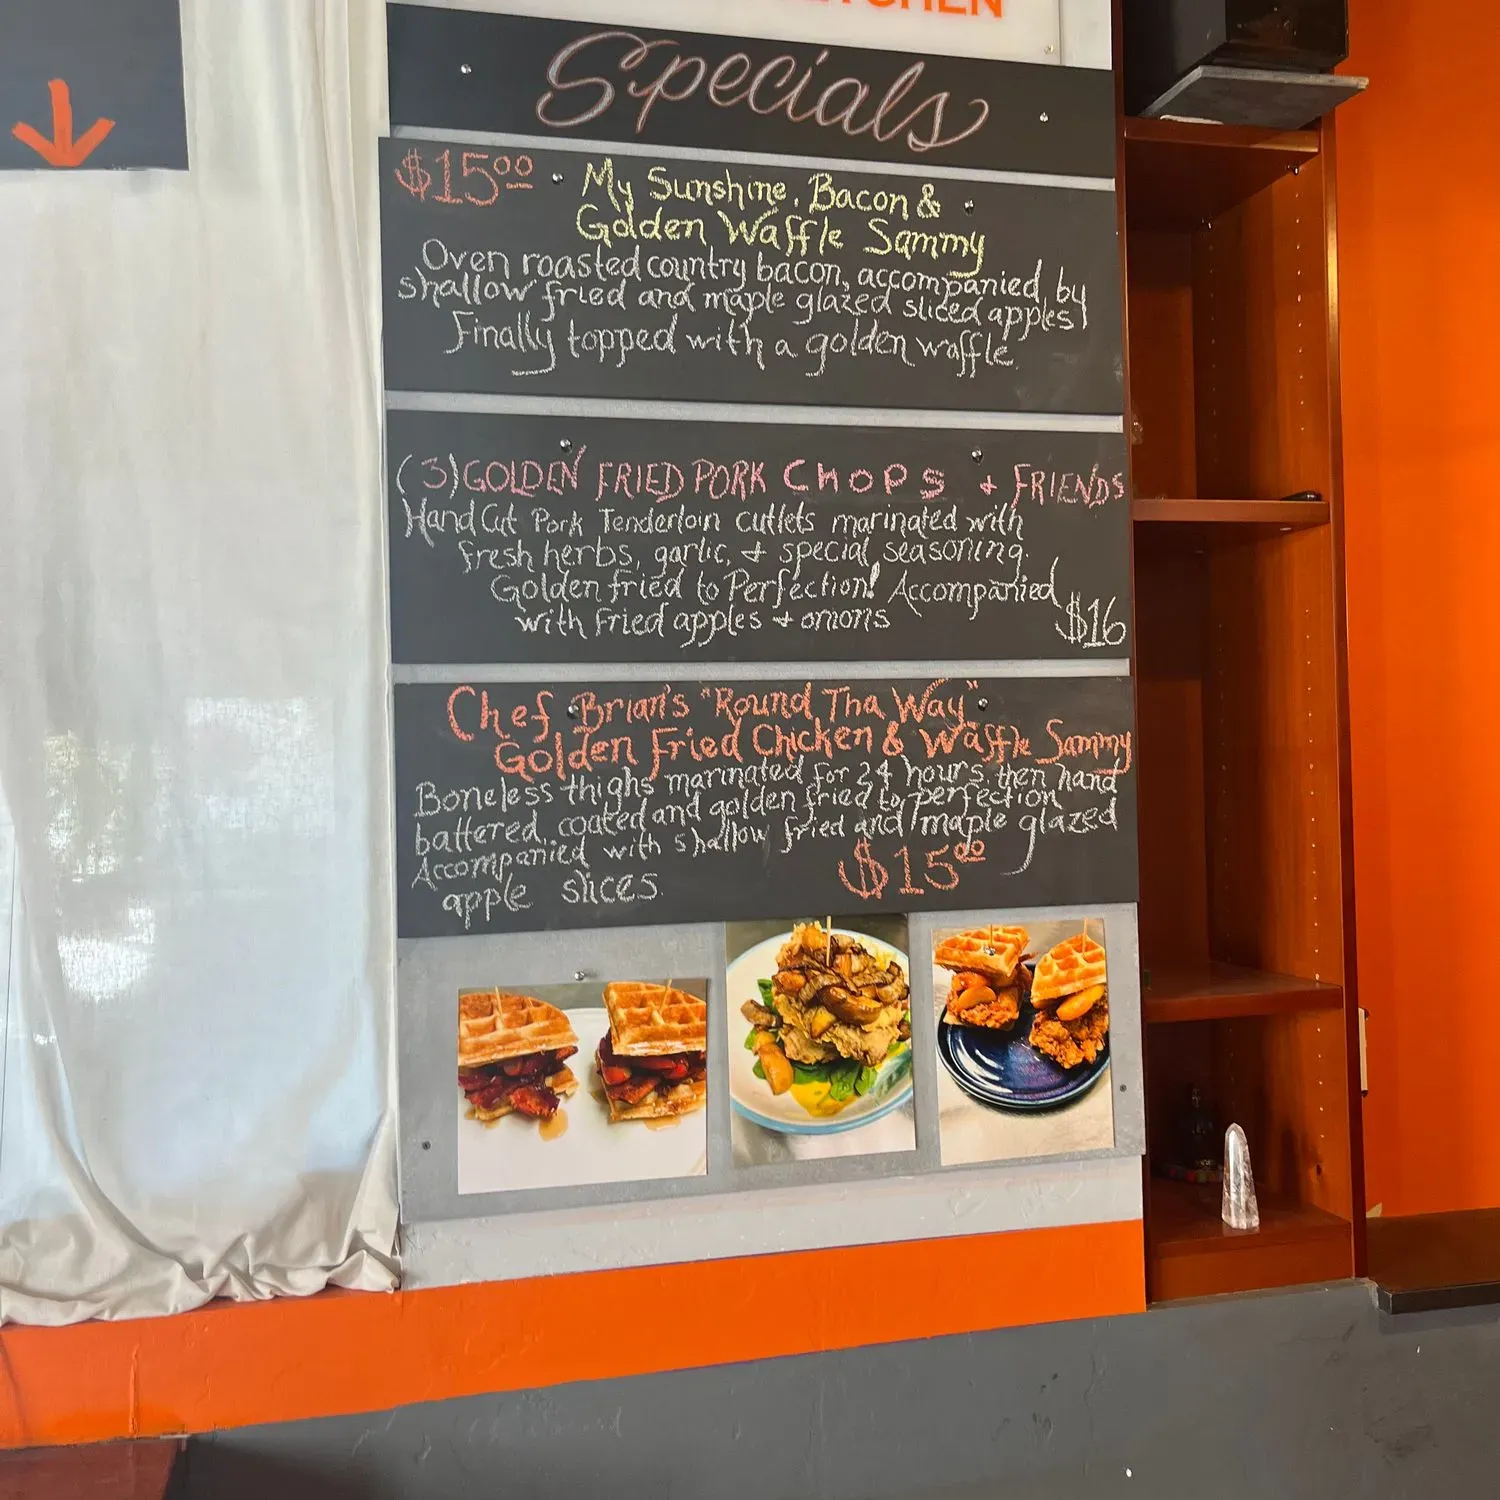 Specials
$15.00
My Sunshine, Bacon &
Golden Waffle Sammy
Oven roasted country bacon, accompanied by
shallow fried and maple glazed sliced apples
Finally topped with a golden waffle.
(3) GOLDEN FRIED PORK CHOPS + FRIENDS
Hand Cut Pork Tenderloin cutlets marinated with
fresh herbs, garlic, + special seasoning.
Golden fried to Perfection! Accompanied
with fried apples + onions
$16
Chef Brian's "Round Tha Way"
Golden Fried Chicken & Waffle Sammy
Boneless thighs marinated for 24 hours then hand
battered, coated and golden fried to perfection
Accompanied with shallow fried and maple glazed
apple slices.
$15.00